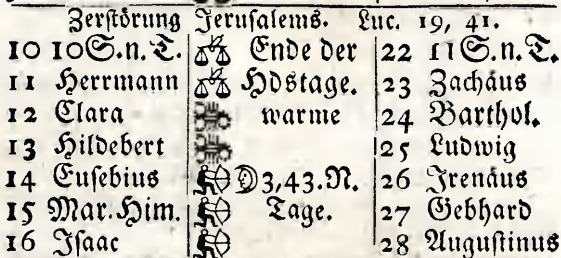 Zerſtörung Jeruſalems. Luc. 19, 41.
10 10 S.n.T. Ende der 22 11 S.n.T.
11 Herrmann Hdstage. 23 Zachäus
12 Clara warme 24 Barthol.
13 Hildebert 25 Ludwig
14 Euſebius 3,43.N. 26 Irenäus
15 Mar.Him. Tage. 27 Gebhard
16 Iſaac 28 Auguſtinus